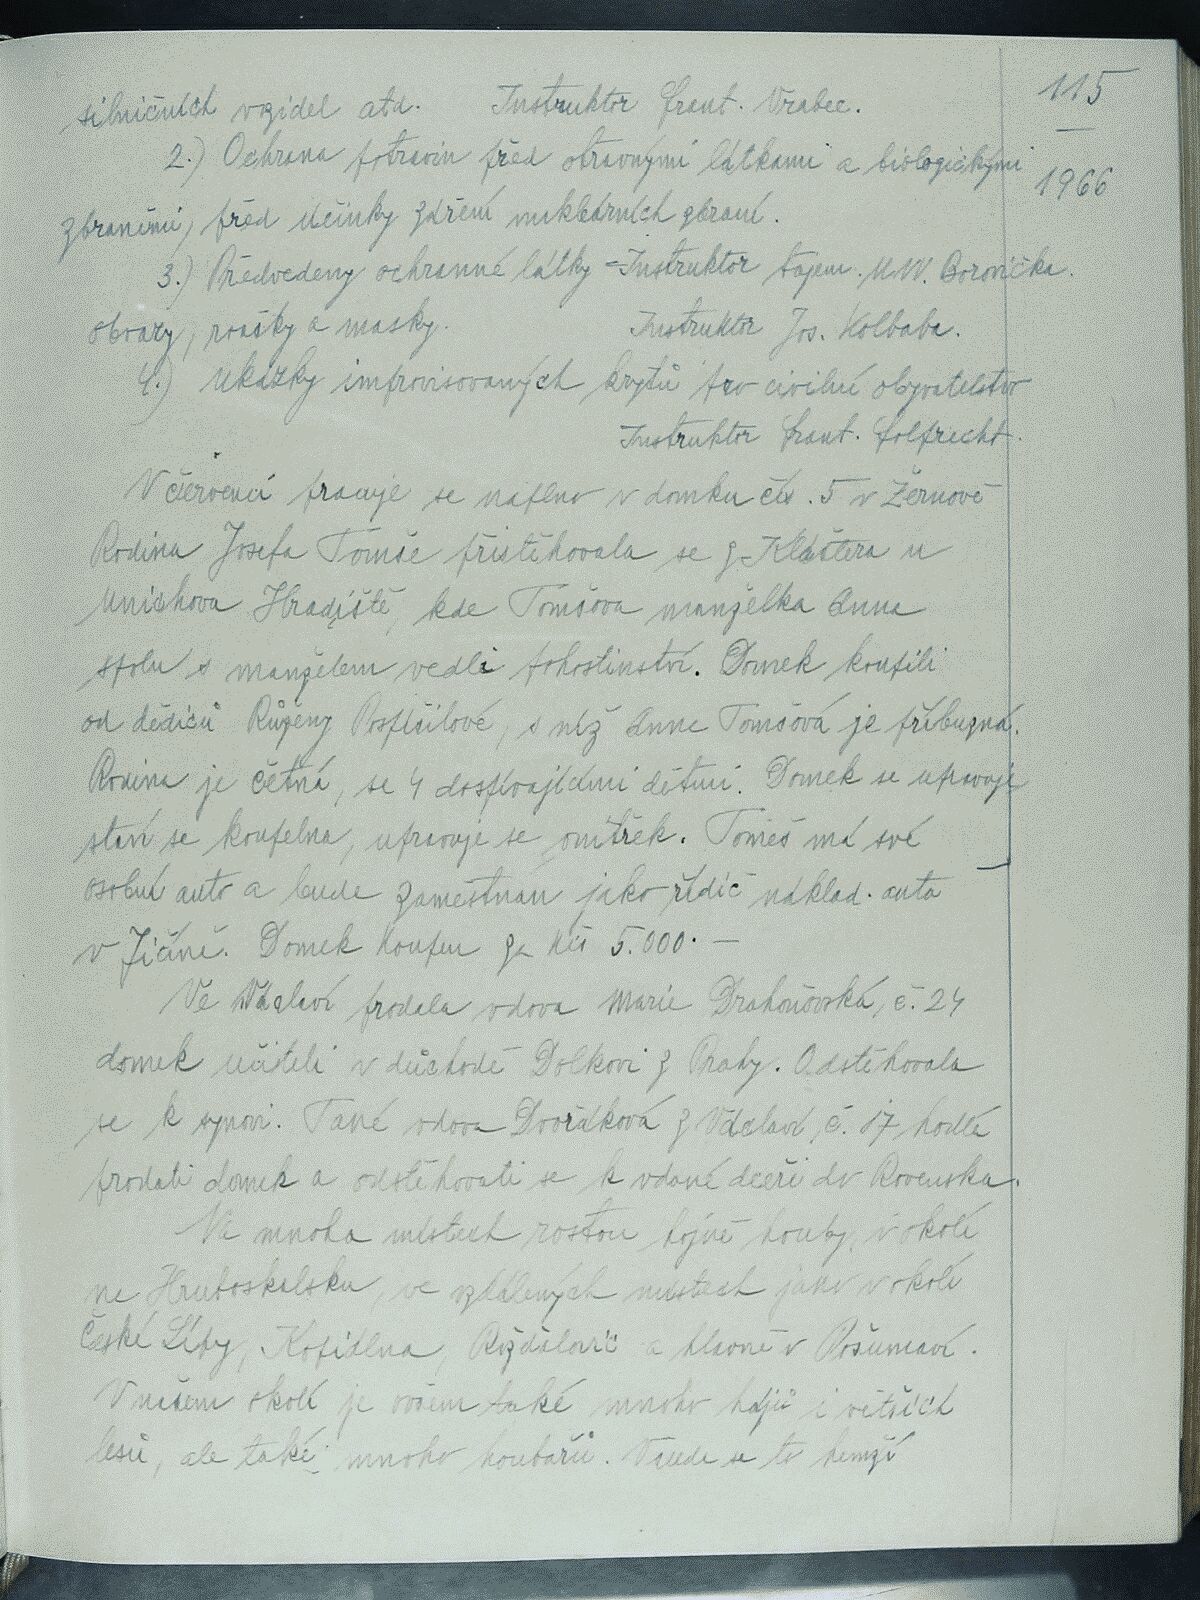 115
1966
silničních vozidel atd. Instruktor Frant. Vrabec.
2.) Ochrana potravin před otravnými látkami a biologickými
zbraněmi, před účinky záření nukleárních zbraní.
3.) Předvedeny ochranné látky = Instruktor tajem. M.N.V. Borovička.
obvazy, roušky a masky. Instruktor Jos. Holbaba.
4.) Ukázky improvisovaných krytů pro civilní obyvatelstvo
Instruktor Frant. Folprecht.
V červenci pracuje se naplno v domku čís. 5 v Žernově
Rodina Josefa Tomše přistěhovala se z Kláštera u
Mnichova Hradiště, kde Tomšova manželka Anna
spolu s manželem vedli pohostinství. Domek koupili
od dědiců Růženy Pospíšilové, s níž Anna Tomšová je příbuzná.
Rodina je četná, se 4 dospívajícími dětmi. Domek se upravuje
staví se koupelna, upravuje se vnitřek. Tomeš má své
osobní auto a bude zaměstnan jako řidič náklad. auta
v Jičíně. Domek koupen za Kčs 5.000.—
Ve Václaví prodala vdova Marie Drahoňovská, č. 24
domek učiteli v důchodě Dolkovi z Prahy. Odstěhovala
se k synovi. Také vdova Dvořáková z Václaví, č. 17 hodlá
prodati domek a odstěhovati se k vdané dceři do Rovenska.
Na mnoha místech rostou hojně houby, v okolí
na Hruboskalsku, ve vzdálených místech jako v okolí
České Lípy, Kopidlna, Rožďalovic a hlavně v Pošumaví.
V našem okolí je ovšem také mnoho hájů i větších
lesů, ale také mnoho houbařů. Všude se to hemží